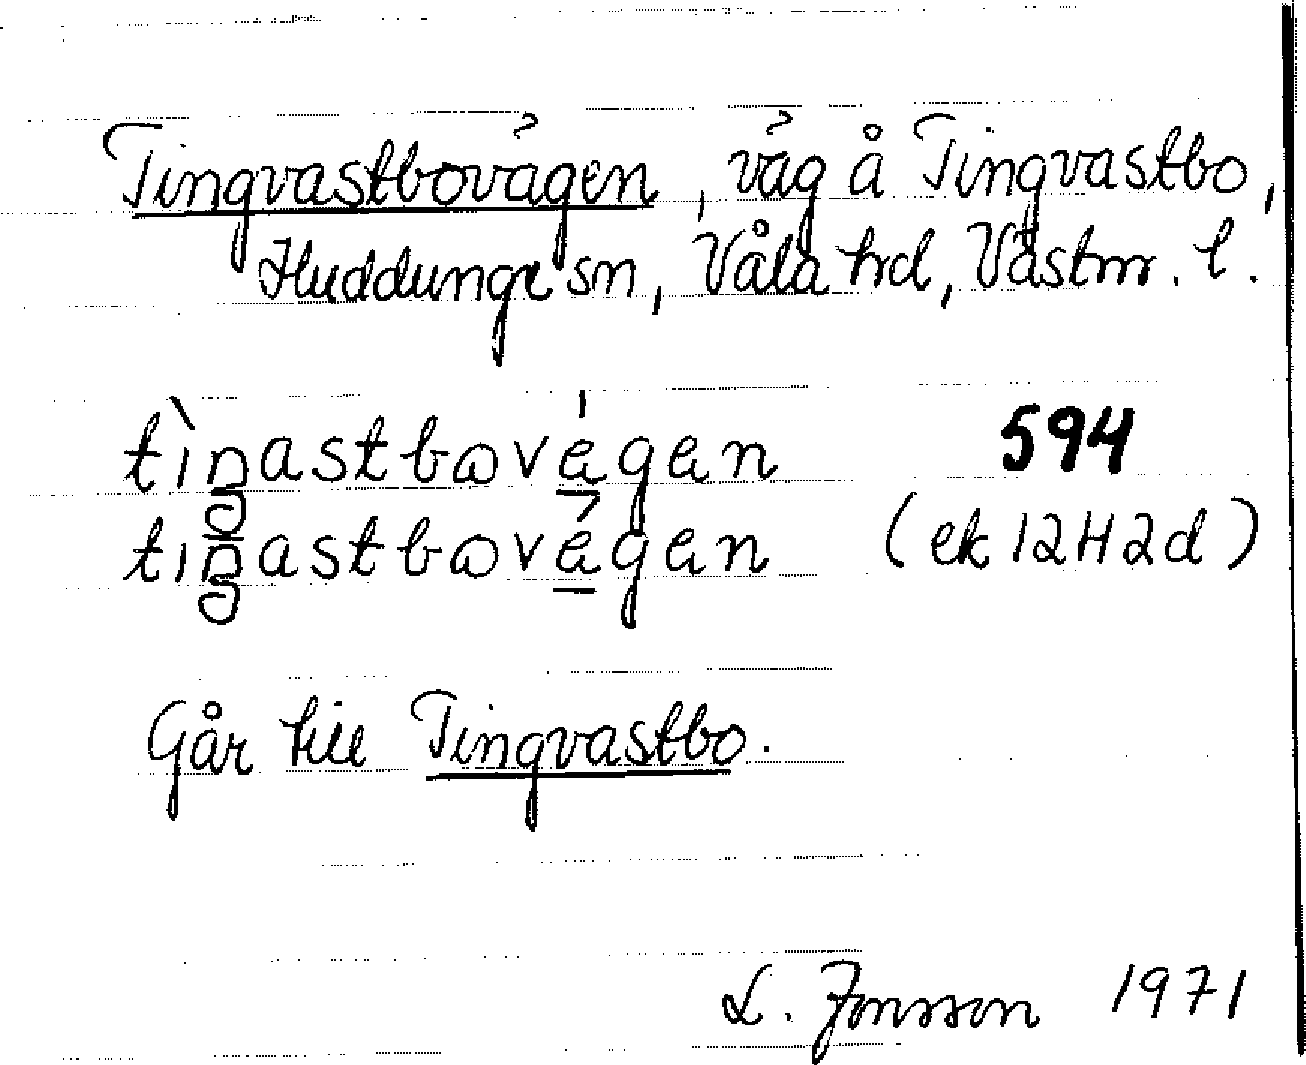 Tingvastbovägen, väg å Tingvastbo,
Huddunge sn, Våla hd, Västm. l.
594
(ek 12H2d)
Går till Tingvastbo.
L. Jonsson 1971